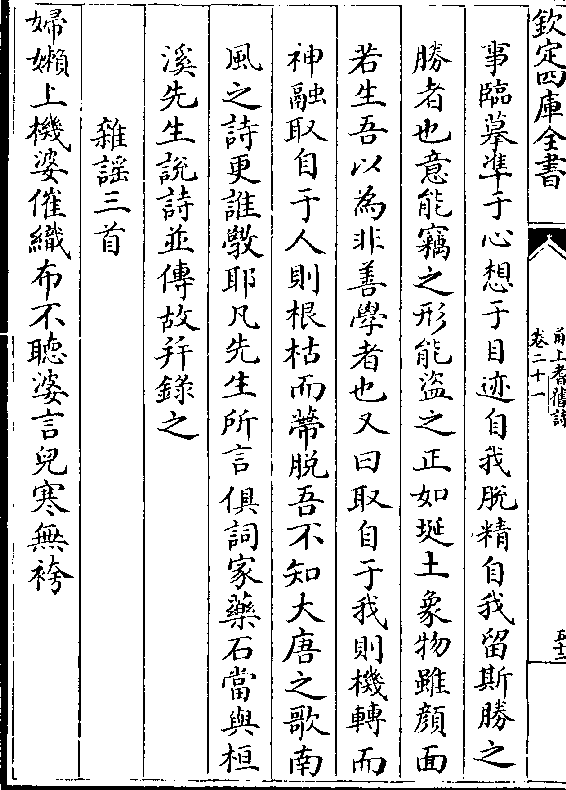 欽定四庫全書
甬上耆舊詩
卷二十一
事臨摹準于心想于目迹自我脱精自我留斯勝之
勝者也意能竊之形能盜之正如埏土象物雖顔面
若生吾以為非善學者也又曰取自于我則機轉而
神融取自于人則根枯而蔕脱吾不知大唐之歌南
風之詩更誰斆耶凡先生所言俱詞家藥石當與桓
溪先生説詩並傳故并錄之
雜謡三首
婦嬾上機婆催織布不聽婆言兒寒無袴